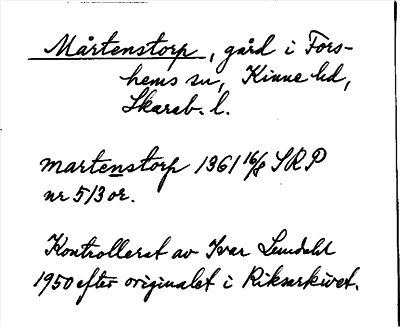 Mårtenstorp, gård i Fors-
hems sn, Kinne hd,
Skarab. l.
martenstorp 1361 16/8 SRP
nr 513 or.
Kontrollerat av Ivar Lundahl
1950 efter originalet i Riksarkivet.